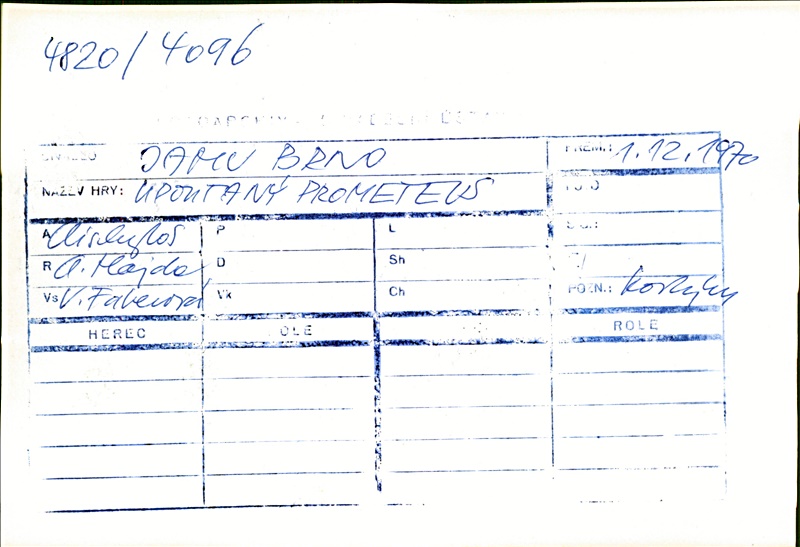 4820/4096
DIVADLO JAMU BRNO PREM.: 1.12.1970
NÁZEV HRY: UPOUTANÝ PROMETEUS FOTO
A Aischylos P L
R A. Hajda D Sh
Vs V. Faberová Vk Ch POZN.: kostýmy
HEREC ROLE ROLE